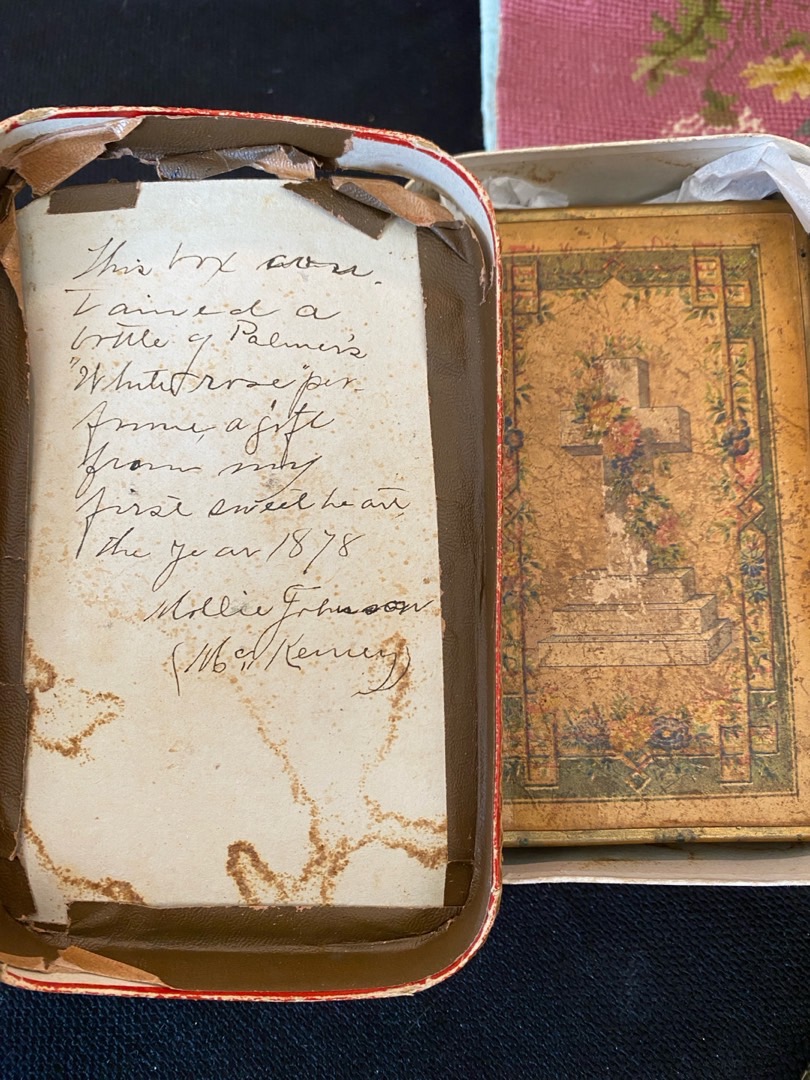 This box con-
tained a
bottle of Palmer's
"White rose" per-
fume, a gift
from my
first sweetheart
the year 1878
Mollie Johnson
(McKenney)